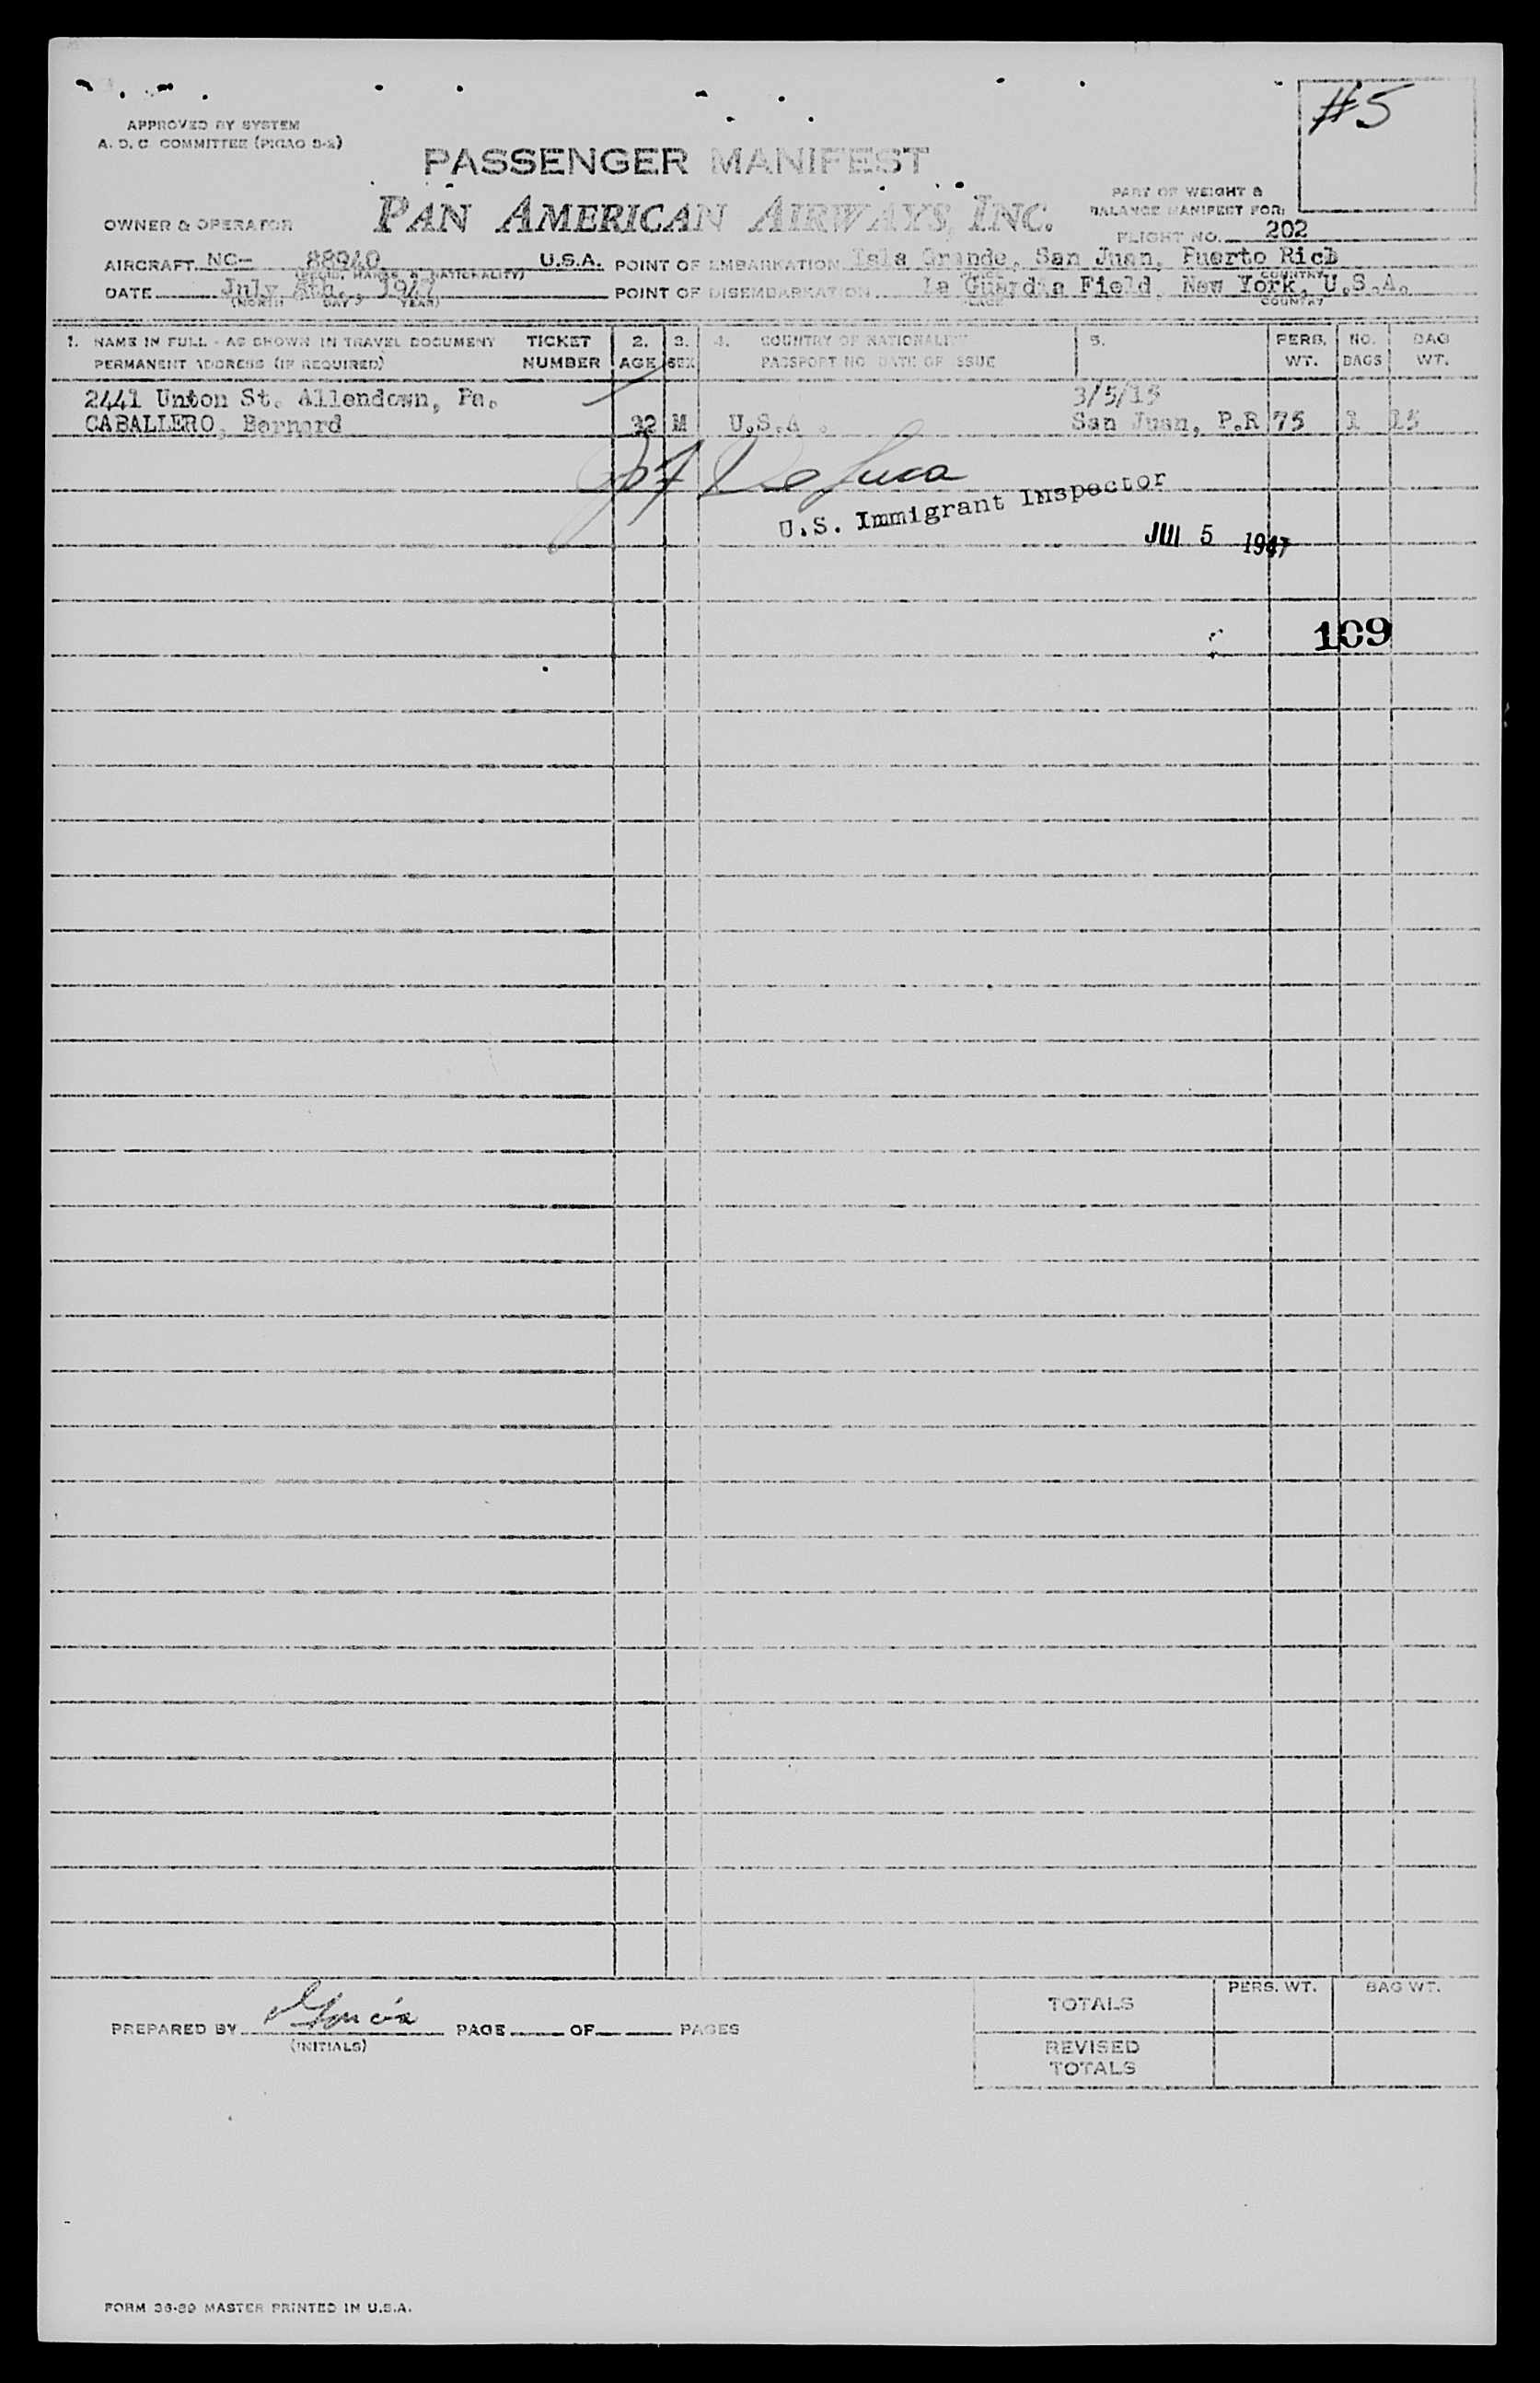 #5
APPROVED BY SYSTEM
A. D. C. COMMITTEE (PICAO 3-2)
PASSENGER MANIFEST
PAN AMERICAN AIRWAYS, INC.
PART OF WEIGHT &
BALANCE MANIFEST FOR:
OWNER & OPERATOR
FLIGHT NO. 202
AIRCRAFT NC- 88940 U.S.A. POINT OF EMBARKATION Isla Grande, San Juan, Puerto Rico
DATE July 4th., 1947 POINT OF DISEMBARKATION La Guardia Field, New York, U.S.A.
(MONTH DAY YEAR) PLACE COUNTRY
1. NAME IN FULL - AS SHOWN IN TRAVEL DOCUMENT TICKET 2. 3. 4. COUNTRY OF NATIONALITY 5. PERS. NO. BAG
PERMANENT ADDRESS (IF REQUIRED) NUMBER AGE SEX PASSPORT NO DATE OF ISSUE WT. BAGS WT.
2441 Unton St. Allendown, Pa. 3/5/15
CABALLERO, Bernard 32 M U.S.A. San Juan, P.R 75 1 15
De Luca
U.S. Immigrant Inspector
JUL 5 1947
109
PREPARED BY Garcia PAGE OF PAGES
(INITIALS)
PERS. WT. BAG WT.
TOTALS
REVISED
TOTALS
FORM 36-89 MASTER PRINTED IN U.S.A.